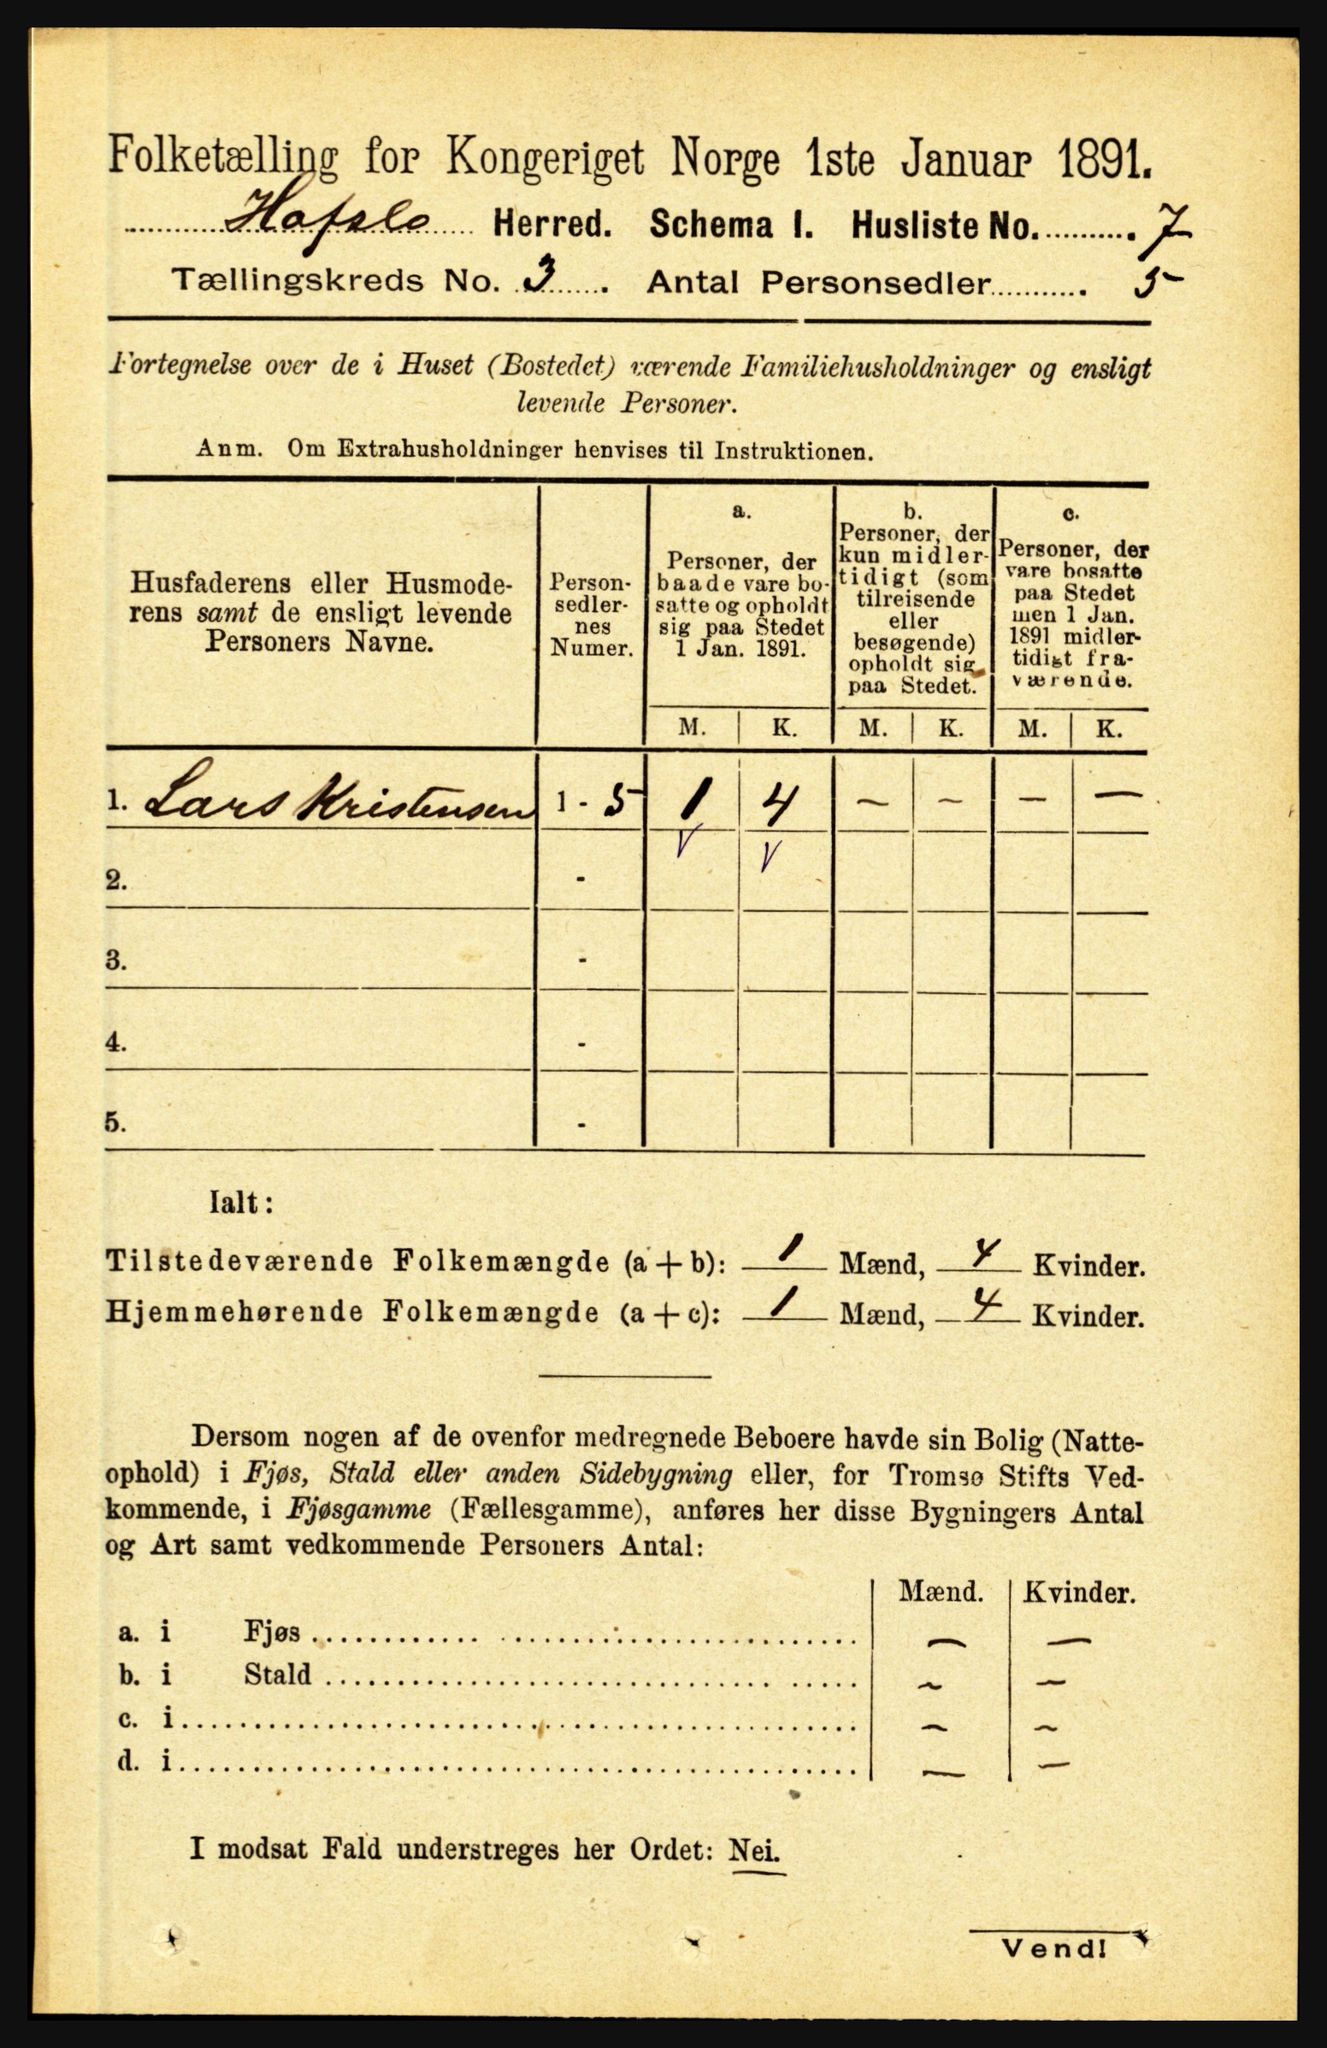 Folketælling for Kongeriget Norge 1ste Januar 1891.
Hafslo Herred. Schema I. Husliste No. 7
Tællingskreds No. 3. Antal Personsedler 5
Fortegnelse over de i Huset (Bostedet) værende Familiehusholdninger og ensligt
levende Personer.
Anm. Om Extrahusholdninger henvises til Instruktionen.
Husfaderens eller Husmode-
rens samt de ensligt levende
Personers Navne.
Person-
sedler-
nes
Numer.
a.
Personer, der
baade vare bo-
satte og opholdt
sig paa Stedet
1 Jan. 1891.
b.
Personer, der
kun midler-
tidigt (som
tilreisende
eller
besøgende)
opholdt sig
paa Stedet.
c.
Personer, der
vare bosatte
paa Stedet
men 1 Jan.
1891 midler-
tidigt fra-
værende.
M. K. M. K. M. K.
1. Lars Kristensen 1 - 5 1 4 – – – –
V V
2. -
3. -
4. -
5. -
Ialt:
Tilstedeværende Folkemængde (a + b): 1 Mænd, 4 Kvinder.
Hjemmehørende Folkemængde (a + c): 1 Mænd, 4 Kvinder.
Dersom nogen af de ovenfor medregnede Beboere havde sin Bolig (Natte-
ophold) i Fjøs, Stald eller anden Sidebygning eller, for Tromsø Stifts Ved-
kommende, i Fjøsgamme (Fællesgamme), anføres her disse Bygningers Antal
og Art samt vedkommende Personers Antal:
Mænd. Kvinder.
a. i Fjøs – –
b. i Stald – –
c. i – –
d. i – –
I modsat Fald understreges her Ordet: Nei.
Vend!